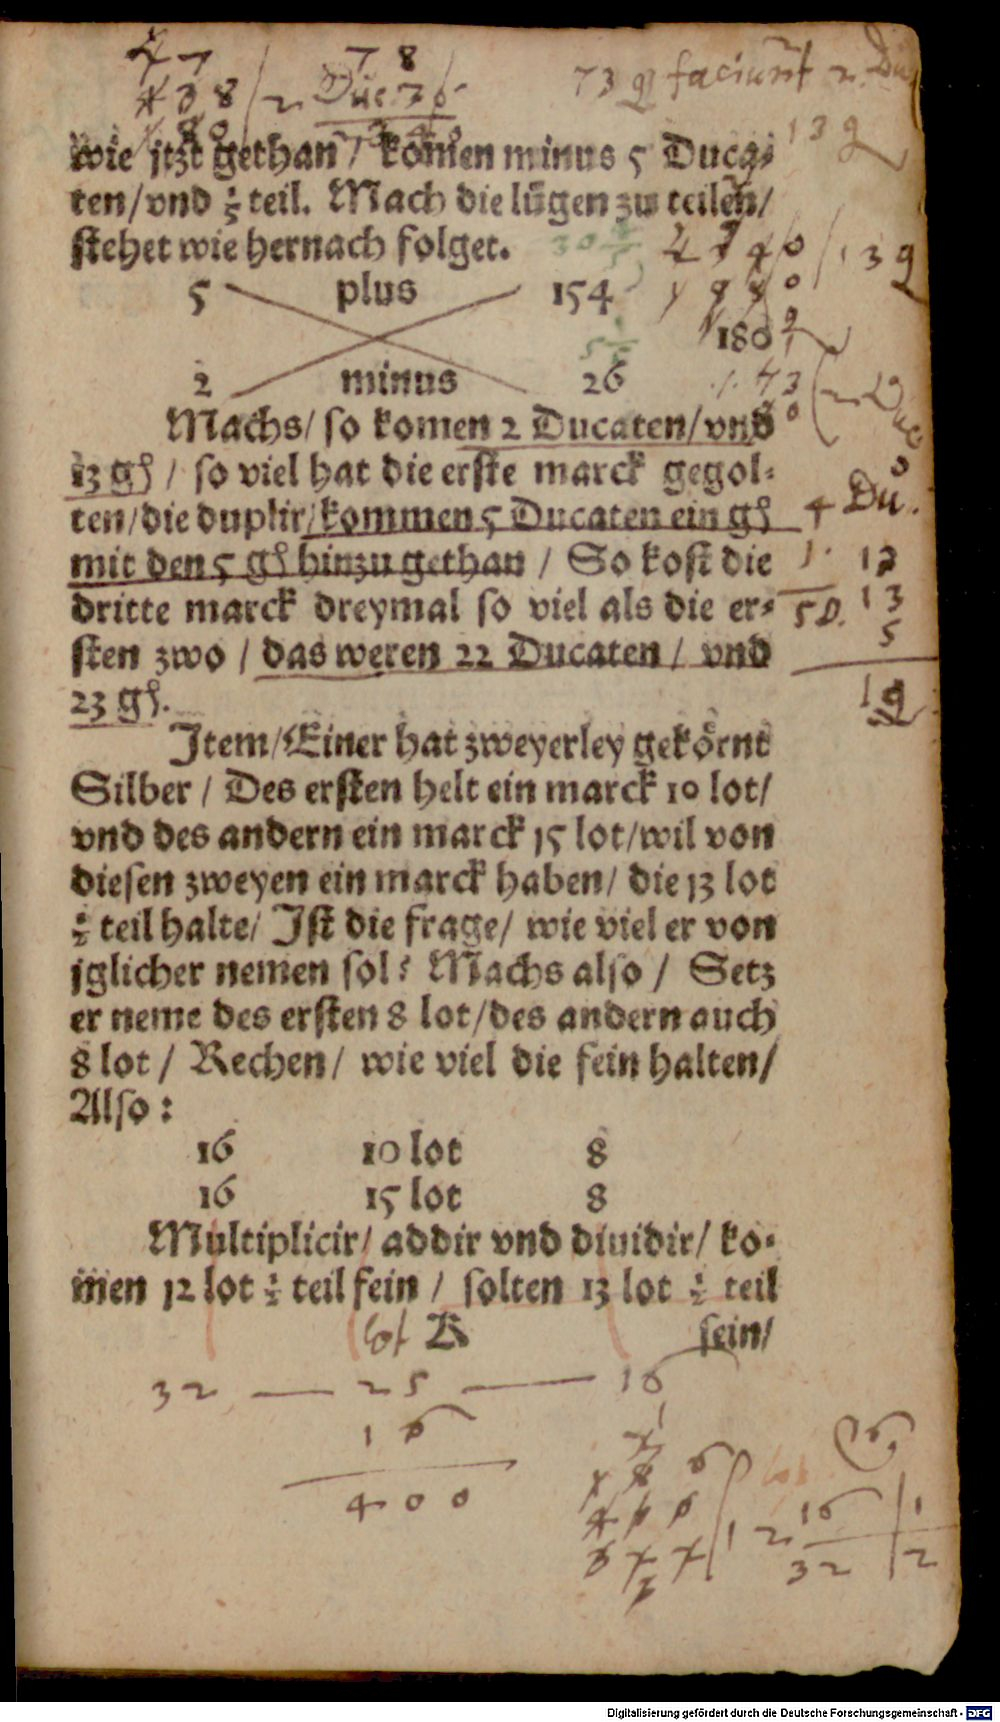 4 7
7 8
4 3 8 / 2 Duc. 36
73 gl faciunt 2 Du
wie jtzt gethan / komen minus 5 Duca⸗
13 g
ten/vnd ⅕ teil. Mach die lügen zu teilen/
stehet wie hernach folget.
13 g
5 plus 154
180
2 minus 26
Machs/ so komen 2 Ducaten/vnd
13 gl / so viel hat die erste marck gegol⸗
ten/die duplir/kommen 5 Ducaten ein gl
4 Du.
mit den 5 gl hinzu gethan / So kost die
1. 13
dritte marck dreymal so viel als die er⸗
5 D. 13
5
sten zwo / das weren 22 Ducaten / vnd
23 gl.
19
Item/Einer hat zweyerley gekörnt
Silber / Des ersten helt ein marck 10 lot/
vnd des andern ein marck 15 lot/wil von
diesen zweyen ein marck haben/ die 13 lot
½ teil halte/ Ist die frage/ wie viel er von
jglicher nemen sol? Machs also / Setz
er neme des ersten 8 lot/des andern auch
8 lot / Rechen/ wie viel die fein halten/
Also:
16 10 lot 8
16 15 lot 8
Multiplicir/ addir vnd diuidir/ ko⸗
men 12 lot ½ teil fein / solten 13 lot ½ teil
fein/
lot
32 — 25 — 16
16
400
16
12 16 1
32 2
Digitalisierung gefördert durch die Deutsche Forschungsgemeinschaft - DFG